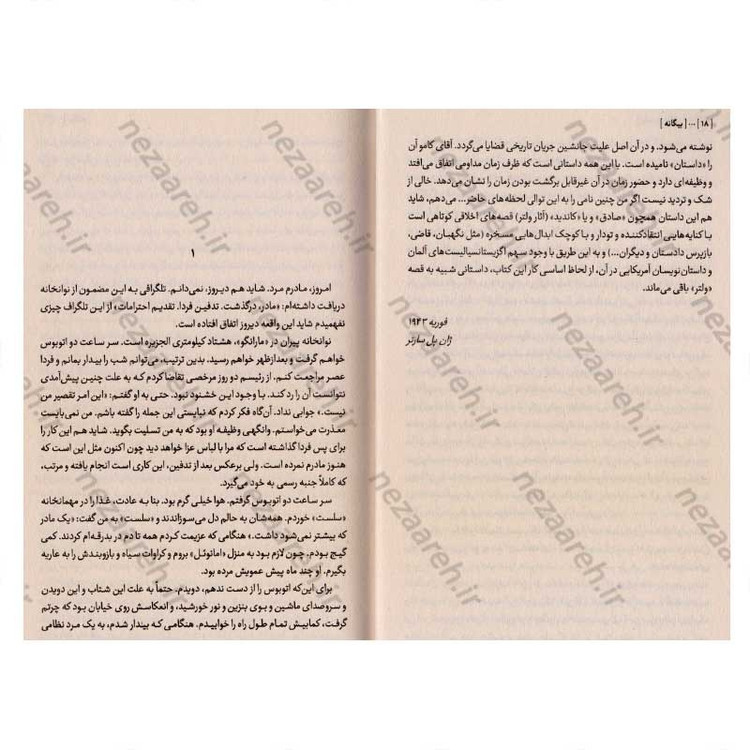 [ ۱۸ ] ... [ بیگانه ]
نوشته می‌شود. و در آن اصل علیت جانشین جریان تاریخی قضایا می‌گردد. آقای کامو آن
را «داستان» نامیده است. با این همه داستانی است که ظرف زمان مداومی اتفاق می‌افتد
و وظیفه‌ای دارد و حضور زمان در آن غیرقابل برگشت بودن زمان را نشان می‌دهد. خالی از
شک و تردید نیست اگر من چنین نامی را به این توالی لحظه‌های حاضر... می‌دهم، شاید
هم این داستان همچون «صادق» و یا «کاندید» (آثار ولتر) قصه‌های اخلاقی کوتاهی است
با کنایه‌هایی انتقادکننده و تودار و با کوچک ابدال‌هایی مسخره (مثل نگهبان، قاضی،
بازپرس دادستان و دیگران...) و به این طریق با وجود سهم اگزیستانسیالیست‌های آلمان
و داستان‌نویسان آمریکایی در آن، از لحاظ اساسی کار این کتاب، داستانی شبیه به قصه
«ولتر» باقی می‌ماند.
فوریه ۱۹۴۳
ژان پل سارتر
۱
امروز، مادرم مرد. شاید هم دیروز، نمی‌دانم. تلگرافی به این مضمون از نوانخانه
دریافت داشته‌ام: «مادر، درگذشت. تدفین فردا. تقدیم احترامات» از این تلگراف چیزی
نفهمیدم شاید این واقعه دیروز اتفاق افتاده است.
نوانخانه پیران در «مارانگو»، هشتاد کیلومتری الجزیره است. سر ساعت دو اتوبوس
خواهم گرفت و بعدازظهر خواهم رسید. بدین ترتیب، می‌توانم شب را بیدار بمانم و فردا
عصر مراجعت کنم. از رئیسم دو روز مرخصی تقاضا کردم که به علت چنین پیش‌آمدی
نتوانست آن را رد کند. با وجود این خشنود نبود. حتی به او گفتم: «این امر تقصیر من
نیست.» جوابی نداد. آن‌گاه فکر کردم که نبایستی این جمله را گفته باشم. من نمی‌بایست
معذرت می‌خواستم. وانگهی وظیفه او بود که به من تسلیت بگوید. شاید هم این کار را
برای پس فردا گذاشته است که مرا با لباس عزا خواهد دید چون اکنون مثل این است که
هنوز مادرم نمرده است. ولی برعکس بعد از تدفین، این کاری است انجام یافته و مرتب،
که کاملاً جنبه رسمی به خود می‌گیرد.
سر ساعت دو اتوبوس گرفتم. هوا خیلی گرم بود. بنا به عادت، غذا را در مهمانخانه
«سلست» خوردم. همه‌شان به حالم دل می‌سوزاندند و «سلست» به من گفت: «یک مادر
که بیشتر نمی‌شود داشت.» هنگامی که عزیمت کردم همه تا دم در بدرقه‌ام کردند. کمی
گیج بودم. چون لازم بود به منزل «امانوئل» بروم و کراوات سیاه و بازوبندش را به عاریه
بگیرم. او چند ماه پیش عمویش مرده بود.
برای این‌که اتوبوس را از دست ندهم، دویدم. حتماً به علت این شتاب و این دویدن
و سروصدای ماشین و بوی بنزین و نور خورشید، و انعکاسش روی خیابان بود که چرتم
گرفت، کمابیش تمام طول راه را خوابیدم. هنگامی که بیدار شدم، به یک مرد نظامی
nezaareh.ir